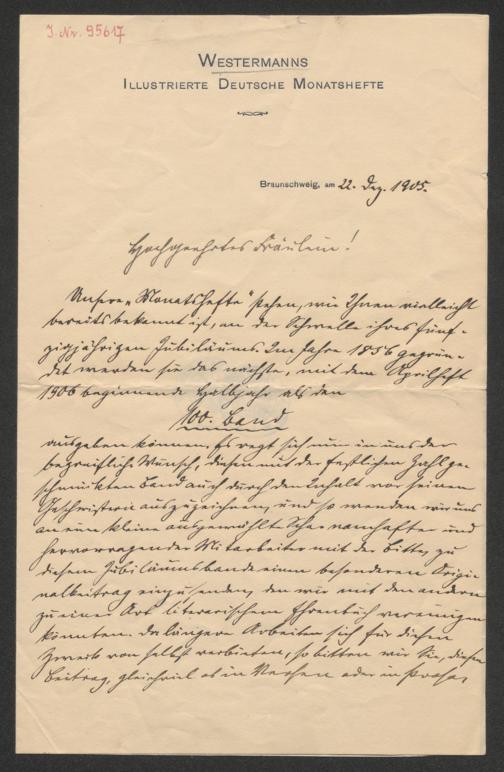 J. Nr. 95617
WESTERMANNS
ILLUSTRIERTE DEUTSCHE MONATSHEFTE
Braunschweig, am 22. Dez. 1905.
Hochgeehrtes Fräulein!
Unsere „Monatshefte" stehen, wie Ihnen vielleicht
bereits bekannt ist, an der Schwelle ihres fünf-
zigjährigen Jubiläums. Im Jahre 1856 gegrün-
det werden sie das nächste, mit dem Aprilheft
1906 beginnende Halbjahr als den
100. Band
ausgeben können. Es regt sich nun in uns der
begreifliche Wunsch, diesen mit der festlichen Zahl ge-
schmückten Band auch durch den Inhalt vor seinen
Geschwistern auszuzeichnen, und so wenden wir uns
an eine kleine ausgewählte Schar namhafter und
hervorragender Mitarbeiter mit der Bitte, zu
diesem Jubiläumsbande einen besonderen Origi-
nalbeitrag einzusenden, den wir mit den andern
zu einer Art literarischem Ehrenbuch vereinigen
könnten. Da längere Arbeiten sich für diesen
Zweck von selbst verbieten, so bitten wir Sie, diesen
Beitrag, gleichviel ob in Versen oder in Prosa,